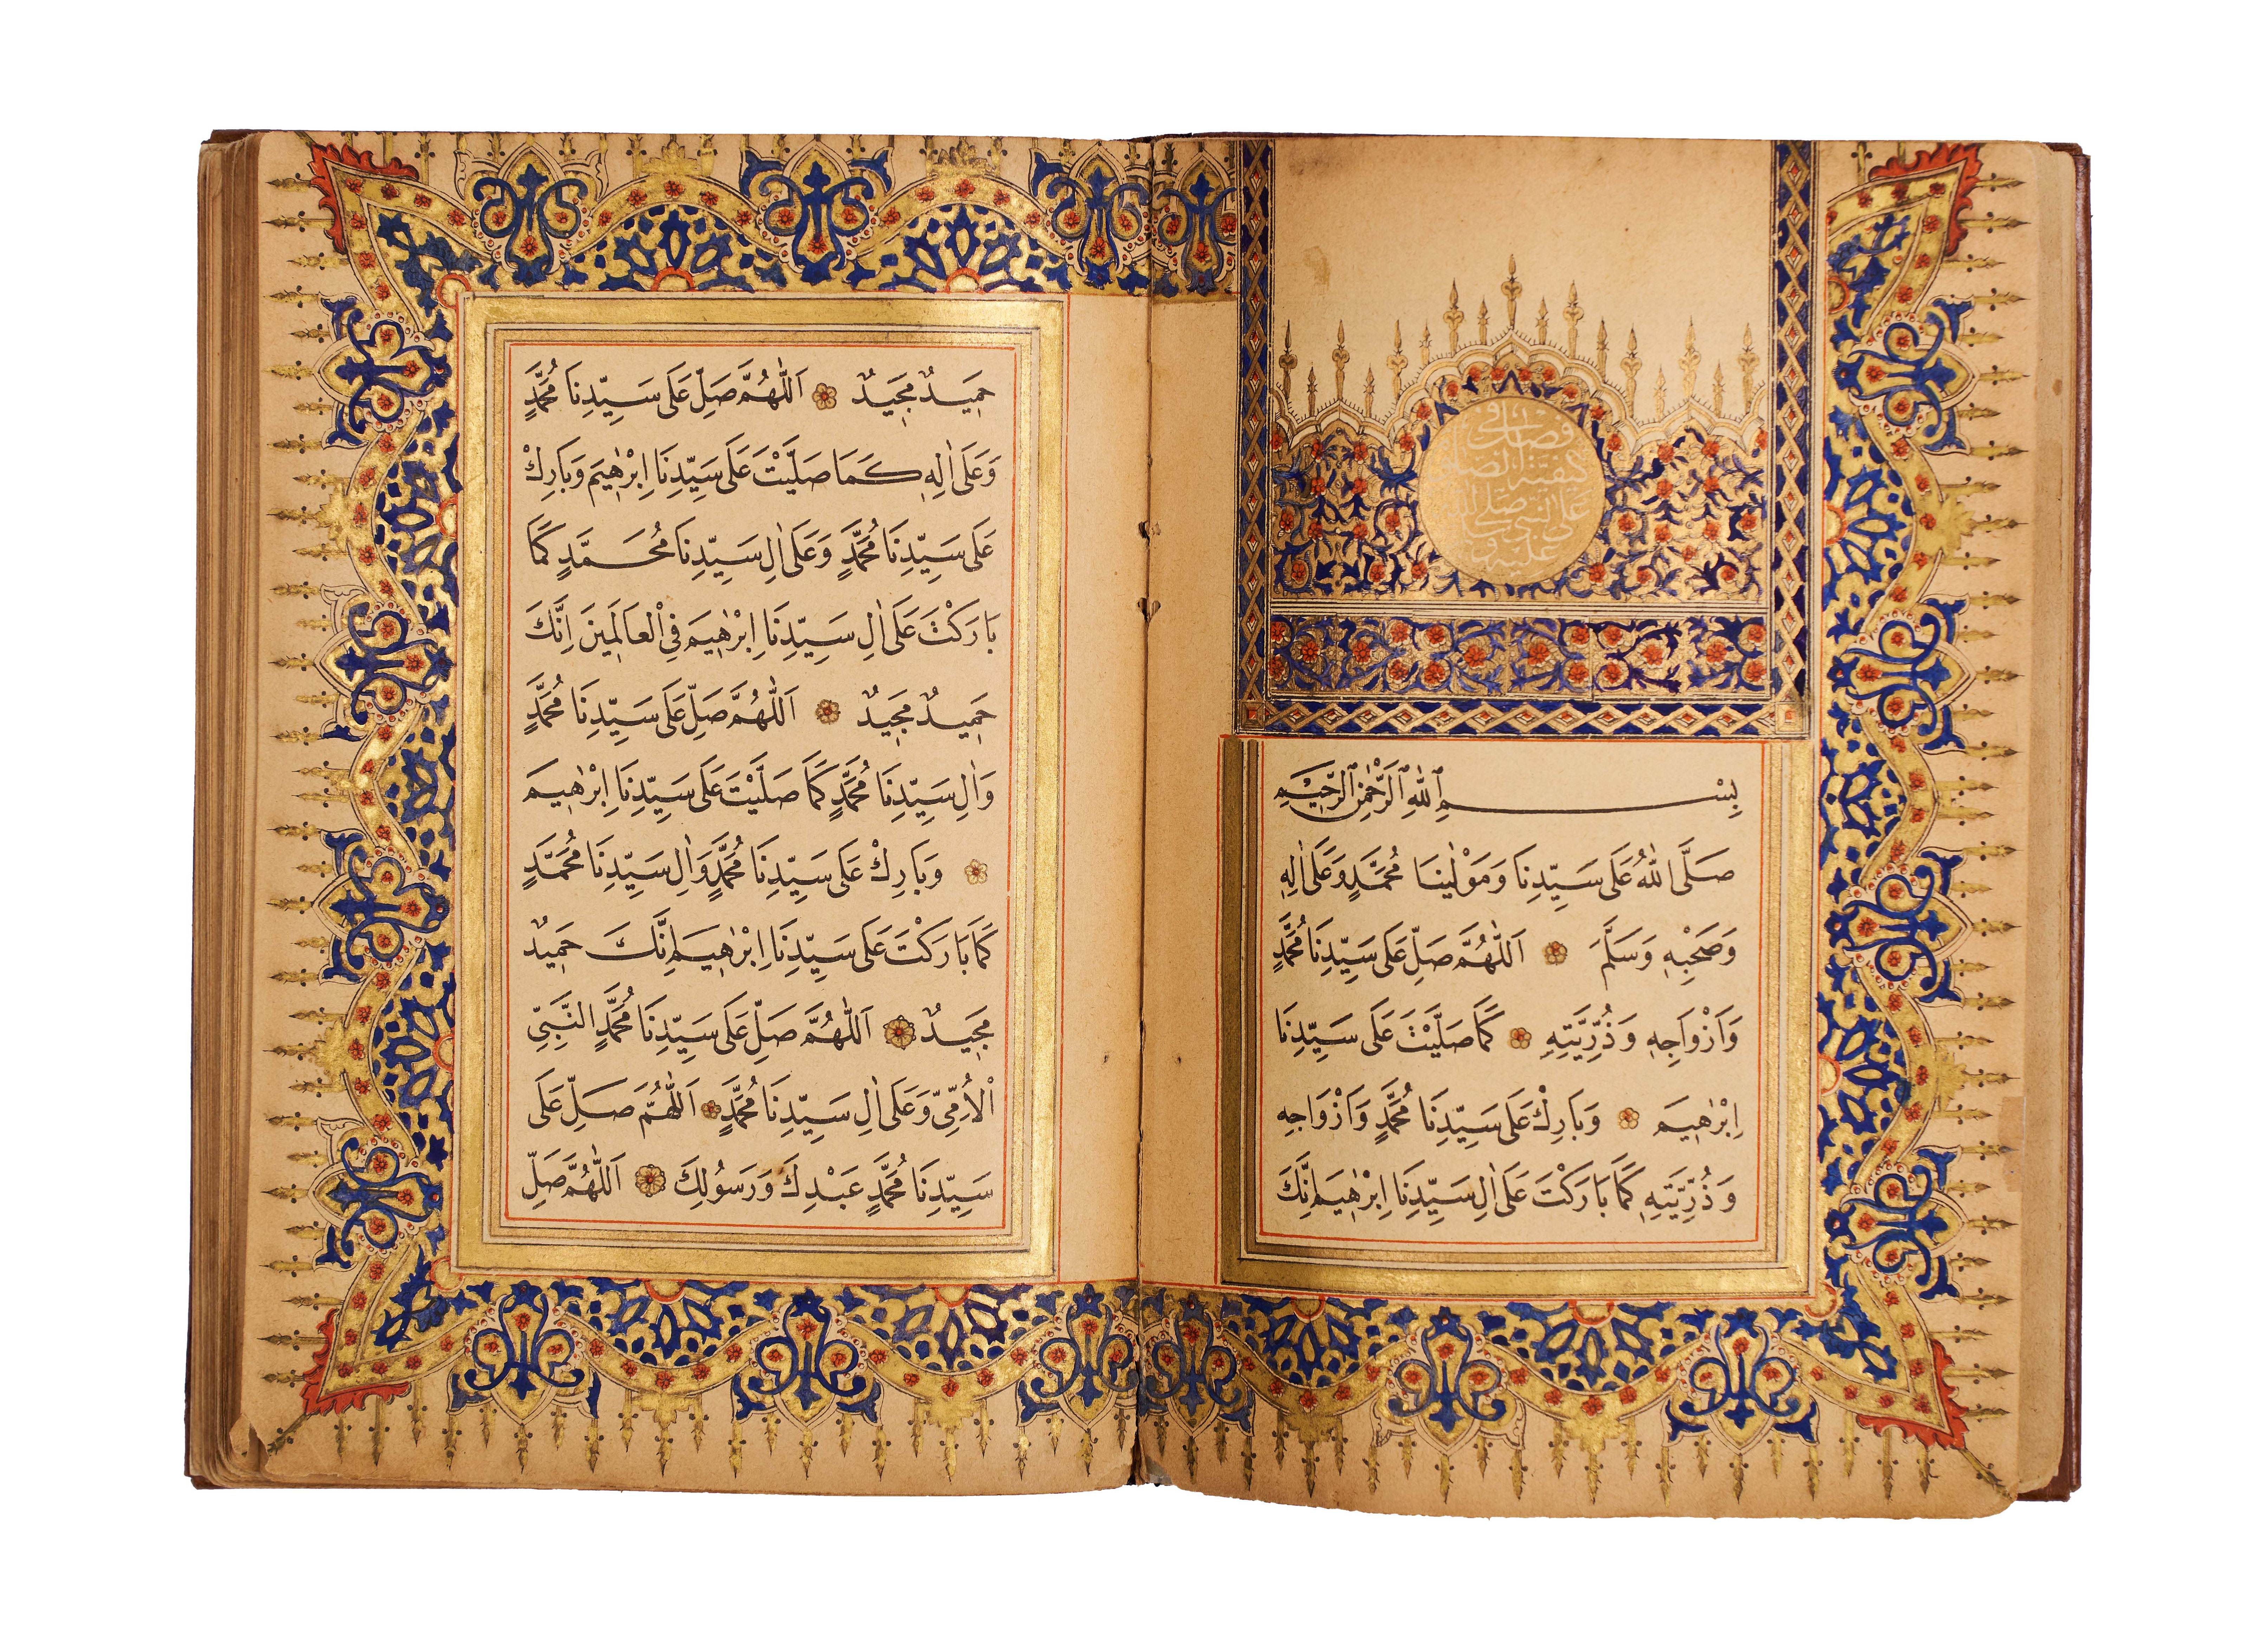 فصل في
كيفية الصلاة
على النبي صلى الله
عليه و
بِسْمِ اللهِ الرَّحْمٰنِ الرَّحِيْمِ
صَلَّى اللهُ عَلَى سَيِّدِنَا وَمَوْلٰينَا مُحَمَّدٍ وَعَلَى اٰلِهِ
وَصَحْبِهِ وَسَلَّمَ اَللّٰهُمَّ صَلِّ عَلَى سَيِّدِنَا مُحَمَّدٍ
وَاَزْوَاجِهِ وَذُرِّيَّتِهِ كَمَا صَلَّيْتَ عَلَى سَيِّدِنَا
اِبْرٰهِيمَ وَبَارِكْ عَلَى سَيِّدِنَا مُحَمَّدٍ وَاَزْوَاجِهِ
وَذُرِّيَّتِهِ كَمَا بَارَكْتَ عَلَى اٰلِ سَيِّدِنَا اِبْرٰهِيمَ اِنَّكَ
حَمِيدٌ مَجِيدٌ اَللّٰهُمَّ صَلِّ عَلَى سَيِّدِنَا مُحَمَّدٍ
وَعَلَى اٰلِهِ كَمَا صَلَّيْتَ عَلَى سَيِّدِنَا اِبْرٰهِيمَ وَبَارِكْ
عَلَى سَيِّدِنَا مُحَمَّدٍ وَعَلَى اٰلِ سَيِّدِنَا مُحَمَّدٍ كَمَا
بَارَكْتَ عَلَى اٰلِ سَيِّدِنَا اِبْرٰهِيمَ فِي الْعَالَمِينَ اِنَّكَ
حَمِيدٌ مَجِيدٌ اَللّٰهُمَّ صَلِّ عَلَى سَيِّدِنَا مُحَمَّدٍ
وَاٰلِ سَيِّدِنَا مُحَمَّدٍ كَمَا صَلَّيْتَ عَلَى سَيِّدِنَا اِبْرٰهِيمَ
وَبَارِكْ عَلَى سَيِّدِنَا مُحَمَّدٍ وَاٰلِ سَيِّدِنَا مُحَمَّدٍ
كَمَا بَارَكْتَ عَلَى سَيِّدِنَا اِبْرٰهِيمَ اِنَّكَ حَمِيدٌ
مَجِيدٌ اَللّٰهُمَّ صَلِّ عَلَى سَيِّدِنَا مُحَمَّدٍ النَّبِيِّ
الْاُمِّيِّ وَعَلَى اٰلِ سَيِّدِنَا مُحَمَّدٍ اَللّٰهُمَّ صَلِّ عَلَى
سَيِّدِنَا مُحَمَّدٍ عَبْدِكَ وَرَسُولِكَ اَللّٰهُمَّ صَلِّ